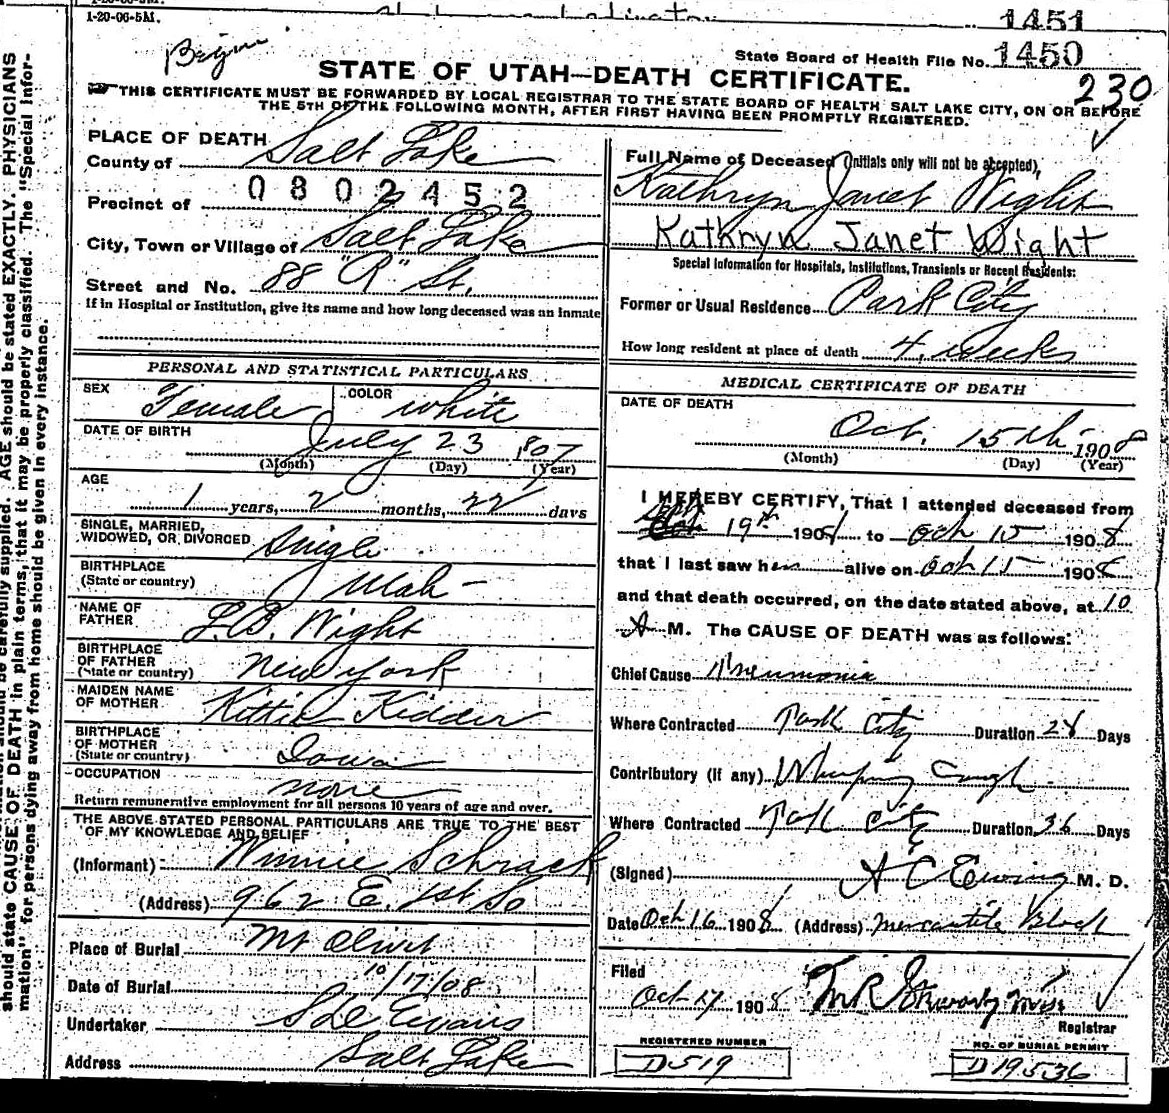 1-20-06-5M.
1451
State Board of Health File No. 1450
STATE OF UTAH—DEATH CERTIFICATE.
230
THIS CERTIFICATE MUST BE FORWARDED BY LOCAL REGISTRAR TO THE STATE BOARD OF HEALTH SALT LAKE CITY, ON OR BEFORE
THE 5TH OF THE FOLLOWING MONTH, AFTER FIRST HAVING BEEN PROMPTLY REGISTERED.
PLACE OF DEATH
County of Salt Lake
0802452
Precinct of
City, Town or Village of Salt Lake
Street and No. 88 "R" St.
If in Hospital or Institution, give its name and how long deceased was an inmate
PERSONAL AND STATISTICAL PARTICULARS
SEX Female COLOR white
DATE OF BIRTH July 23 1907
(Month) (Day) (Year)
AGE
1 years, 2 months, 22 days
SINGLE, MARRIED, WIDOWED, OR DIVORCED Single
BIRTHPLACE
(State or country) Utah
NAME OF
FATHER L.B. Wight
BIRTHPLACE
OF FATHER
(State or country) New York
MAIDEN NAME
OF MOTHER Kittie Kidder
BIRTHPLACE
OF MOTHER
(State or country) Iowa
OCCUPATION none
Return remunerative employment for all persons 10 years of age and over.
THE ABOVE STATED PERSONAL PARTICULARS ARE TRUE TO THE BEST
OF MY KNOWLEDGE AND BELIEF
(Informant) Winnie Schrack
(Address) 962 E. 1st So
Place of Burial Mt Olivet
Date of Burial 10/17/08
Undertaker Evans
Address Salt Lake
Full Name of Deceased (Initials only will not be accepted),
Kathryn Janet Wight
Kathryn Janet Wight
Special Information for Hospitals, Institutions, Transients or Recent Residents:
Former or Usual Residence Park City
How long resident at place of death 4 weeks
MEDICAL CERTIFICATE OF DEATH
DATE OF DEATH
Oct. 15th 1908
(Month) (Day) (Year)
I HEREBY CERTIFY, That I attended deceased from
Sept 19th 1908 to Oct 15 1908
that I last saw her alive on Oct 15 1908
and that death occurred, on the date stated above, at 10
A M. The CAUSE OF DEATH was as follows:
Chief Cause Pneumonia
Where Contracted Park City Duration 28 Days
Contributory (if any) Whooping Cough
Where Contracted Park City Duration 36 Days
(Signed) A C Ewing M. D.
Date Oct 16 1908 (Address) Mercantile Block
Filed
Oct 17 1908
Registrar
REGISTERED NUMBER
D519
NO. OF BURIAL PERMIT
D19536
AGE should be stated EXACTLY. PHYSICIANS
should state CAUSE OF DEATH in plain terms, that it may be properly classified. The "Special Infor-
mation" for persons dying away from home should be given in every instance.